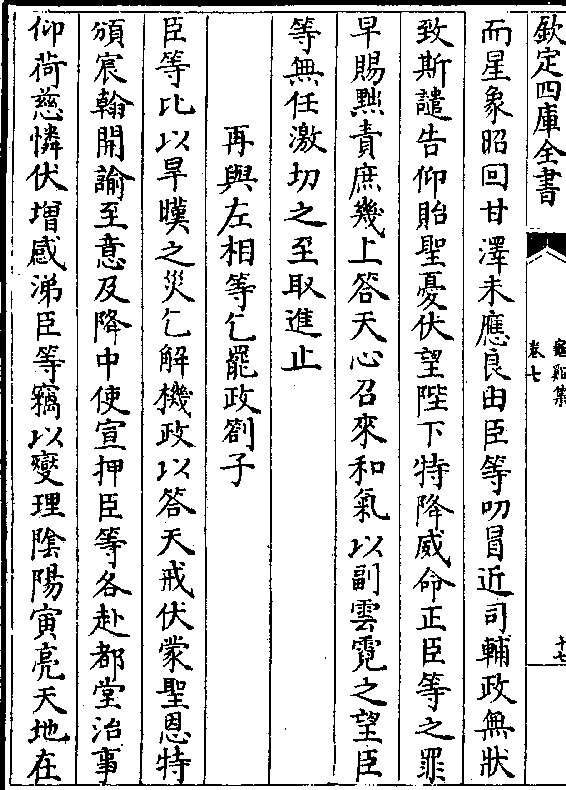 欽定四庫全書
龜谿集
卷七
十七
而星象昭回甘澤未應良由臣等叨冒近司輔政無狀
致斯譴告仰貽聖憂伏望陛下特降威命正臣等之罪
早賜黜責庶幾上答天心召來和氣以副雲霓之望臣
等無任激切之至取進止
再與左相等乞罷政劄子
臣等比以旱暵之災乞解機政以答天戒伏蒙聖恩特
頒宸翰開諭至意及降中使宣押臣等各赴都堂治事
仰荷慈憐伏增感涕臣等竊以燮理陰陽寅亮天地在